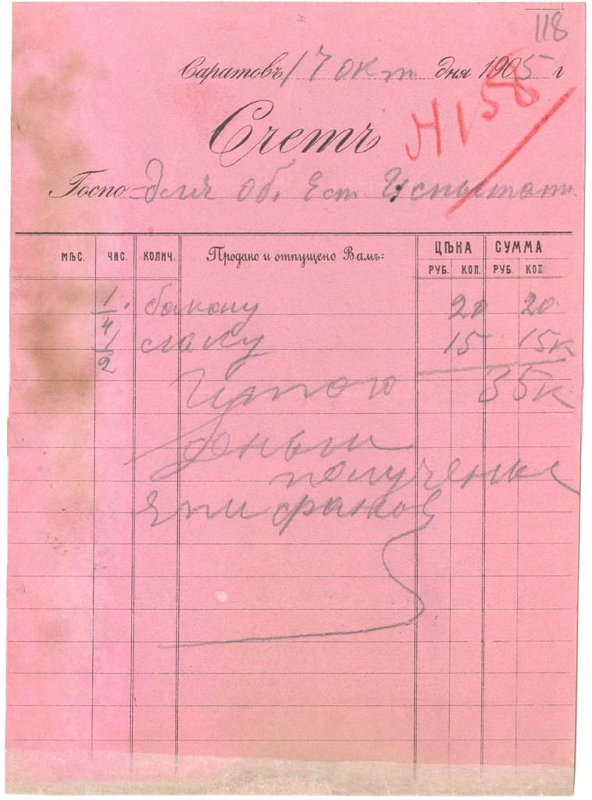 118
Саратовъ 17 окт дня 1905 г
№ 158
Счетъ
Госпо для Об. Ест Испытат
МѢС. ЧИС. КОЛИЧ. Продано и отпущено Вамъ: ЦѢНА СУММА
РУБ. КОП. РУБ. КОП.
1/4 бакану 20 20
1/2 слаку 15 15к
Итого 35к
деньги
получены
Епифанов